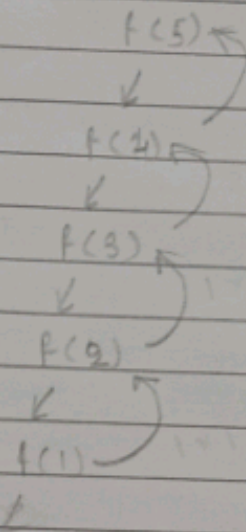 f(5)
f(4)
f(3)
f(2)
f(1)